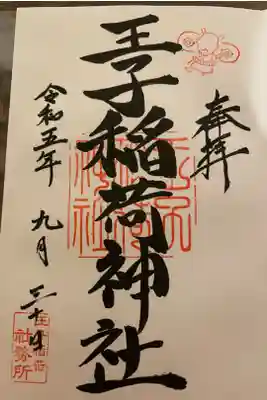 奉拝
王子稲荷神社
令和五年 九月 三十日
王子稲荷
社務所